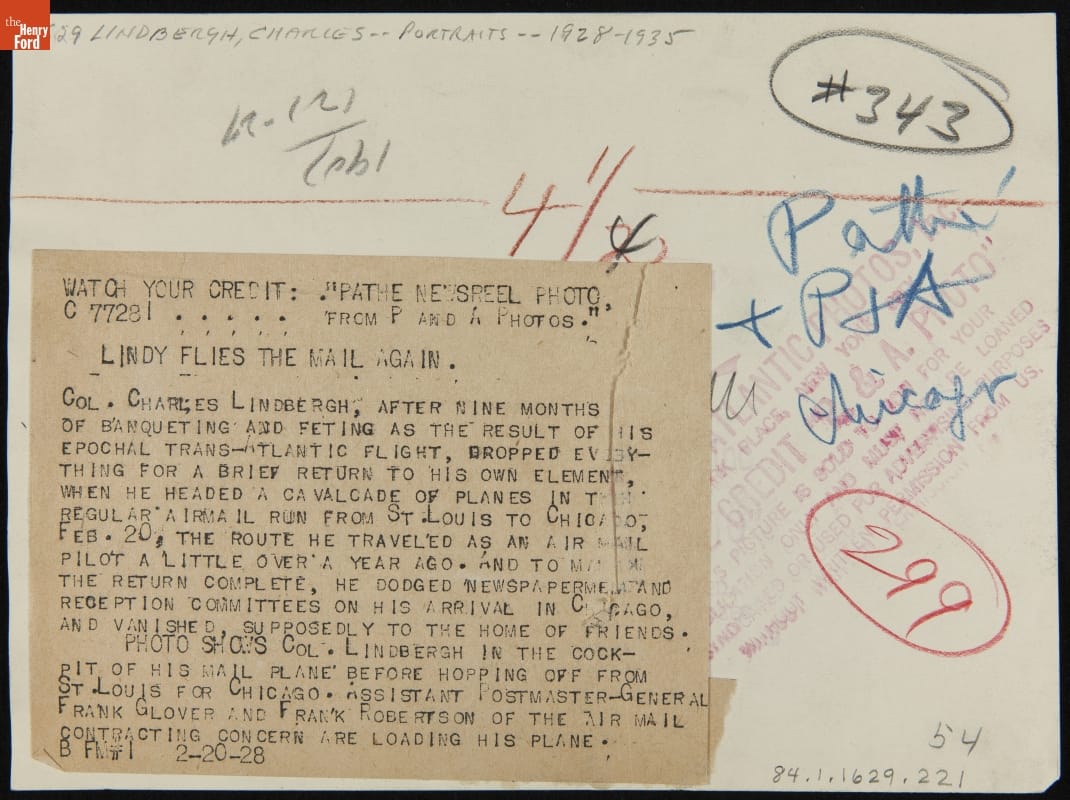 the
Henry
Ford
29 LINDBERGH, CHARLES -- PORTRAITS -- 1928-1935
#343
4"
Pathé
+ P & A
Chicago
299
WATCH YOUR CREDIT: "PATHE NEWSREEL PHOTO,
C 77281 . . . . . FROM P AND A PHOTOS."
LINDY FLIES THE MAIL AGAIN.
COL. CHARLES LINDBERGH, AFTER NINE MONTHS
OF BANQUETING AND FETING AS THE RESULT OF HIS
EPOCHAL TRANS-ATLANTIC FLIGHT, DROPPED EVERY-
THING FOR A BRIEF RETURN TO HIS OWN ELEMENT,
WHEN HE HEADED A CAVALCADE OF PLANES IN THE
REGULAR AIRMAIL RUN FROM ST.LOUIS TO CHICAGO,
FEB. 20, THE ROUTE HE TRAVELED AS AN AIR MAIL
PILOT A LITTLE OVER A YEAR AGO. AND TO MAKE
THE RETURN COMPLETE, HE DODGED NEWSPAPERMEN AND
RECEPTION COMMITTEES ON HIS ARRIVAL IN CHICAGO,
AND VANISHED, SUPPOSEDLY TO THE HOME OF FRIENDS.
PHOTO SHOWS COL. LINDBERGH IN THE COCK-
PIT OF HIS MAIL PLANE BEFORE HOPPING OFF FROM
ST.LOUIS FOR CHICAGO. ASSISTANT POSTMASTER-GENERAL
FRANK GLOVER AND FRANK ROBERTSON OF THE AIR MAIL
CONTRACTING CONCERN ARE LOADING HIS PLANE.
B FM#1 2-20-28
54
84.1.1629.221